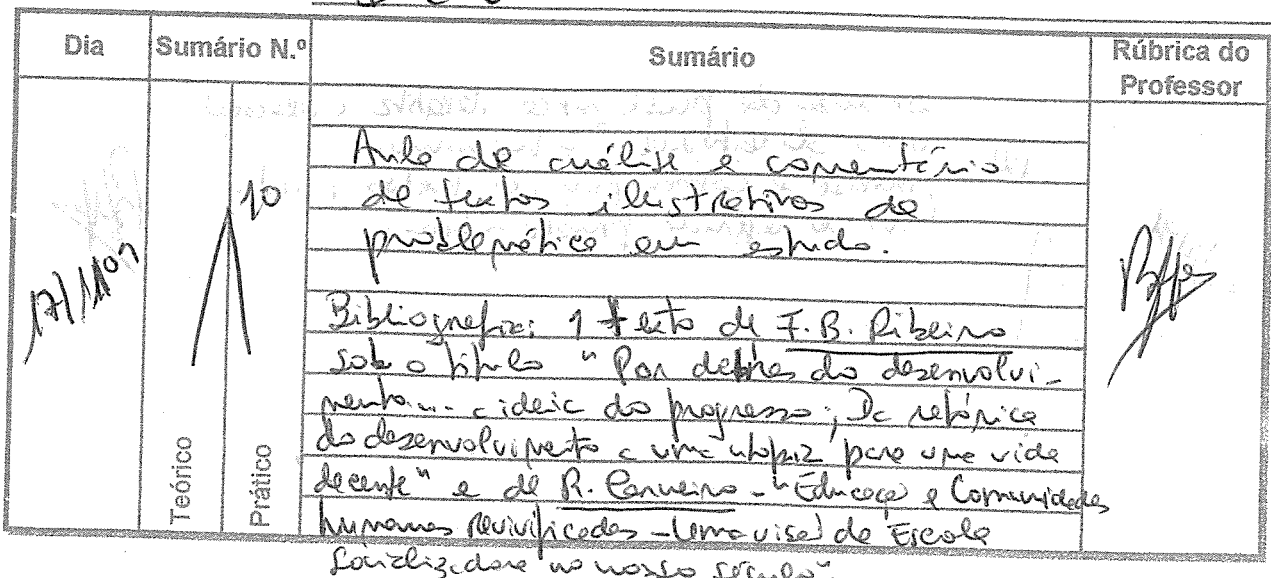 Dia
Sumário N.º
Sumário
Rúbrica do
Professor
Aula de análise e comentário
10
de textos ilustrativos da
problemática em estudo.
17/11/09
Bibliografia: 1 texto de F.B. Ribeiro
sob o título "Por detrás do desenvolvi-
mento... a ideia do progresso; Da retórica
do desenvolvimento a uma utopia para uma vida
decente" e de R. Carneiro - "Educação e Comunidades
humanas revivificadas - Uma visão de Escola
Socializadora no nosso século".
Teórico
Prático